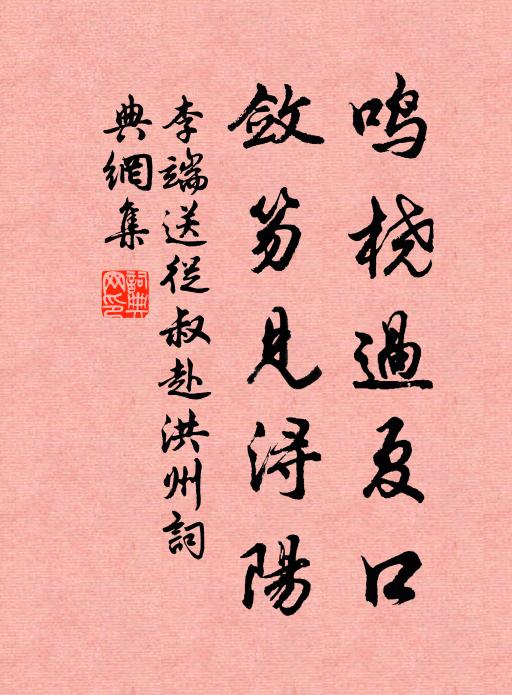 鸣桡過夏口
敛笏見浔陽
李端送從叔赴洪州詞
典網集
詞典網印